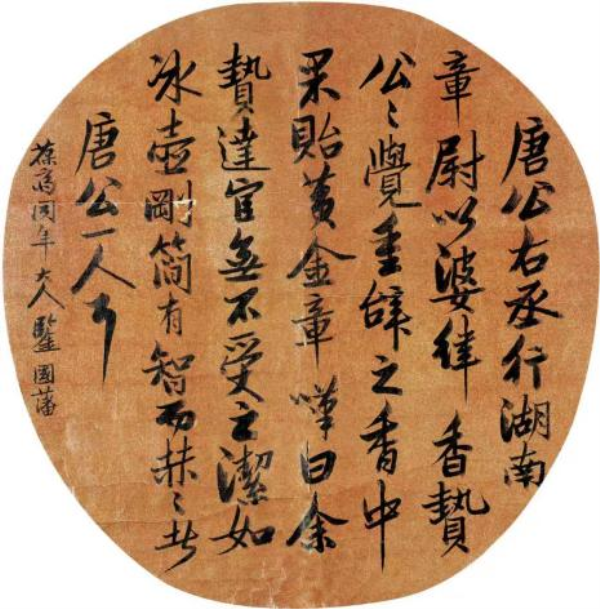 唐公右丞行湖南
章尉以婆律香贄
公〻覺重辭之香中
果貽黃金章嘆曰余
贄達官無不受之潔如
冰壺剛簡有智而赫〻者
唐公一人耳
葆同年大人鑒國藩